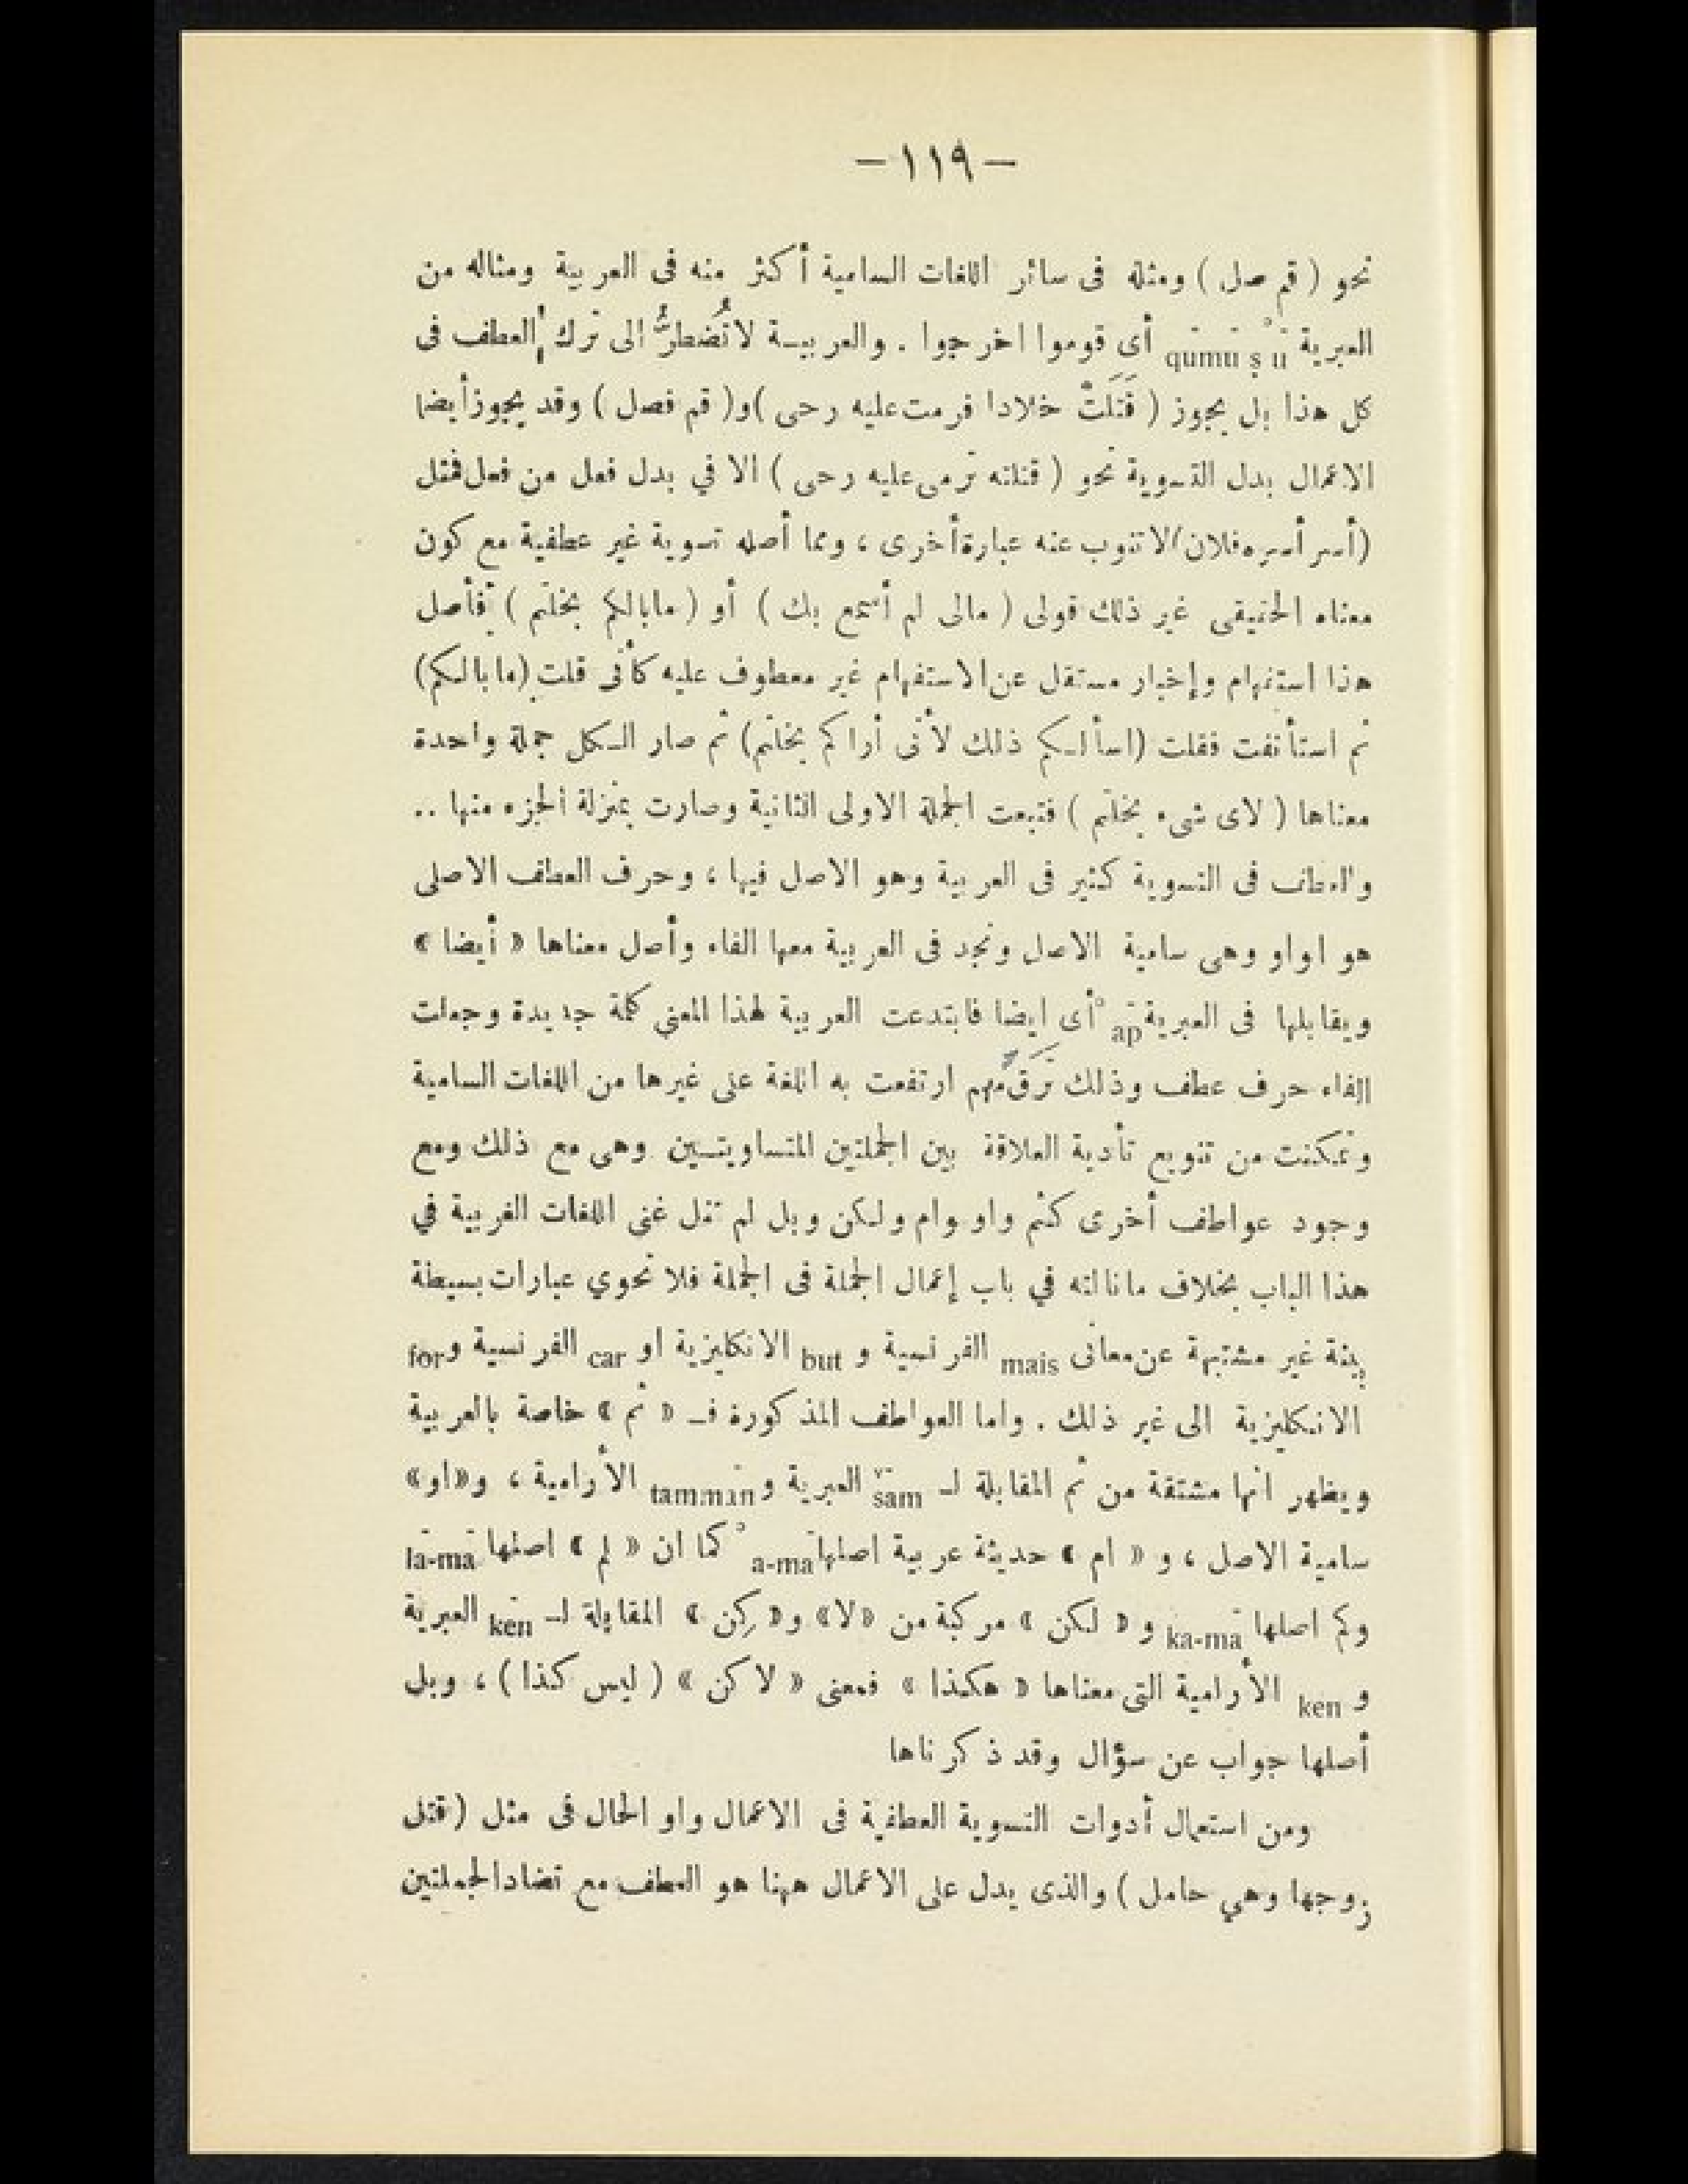 — ١١٩ —
نحو ( قم صل ) ومثله فى سائر اللغات السامية أكثر منه فى العربية ومثاله من
العبرية qūmū ṣ°ū أى قوموا اخرجوا . والعربية لا تُضطرُّ الى ترك العطف فى
كل هذا بل يجوز ( قَتَلَتْ خلادا فرمت عليه رحى ) و( قم فصل ) وقد يجوز أيضا
الاعمال بدل التسوية نحو ( قتلته ترمى عليه رحى ) الا في بدل فعل من فعل فمثل
(أسر أسره فلان) لا تنوب عنه عبارة أخرى ، ومما أصله تسوية غير عطفية مع كون
معناه الحقيقى غير ذلك قولى ( مالى لم أسمع بك ) أو ( مابالكم بخلتم ) فأصل
هذا استفهام وإخبار مستقل عن الاستفهام غير معطوف عليه كأنى قلت (ما بالكم)
ثم استأنفت فقلت (اسألكم ذلك لأنى أراكم بخلتم) ثم صار الكل جملة واحدة
معناها ( لاى شىء بخلتم ) فتبعت الجملة الاولى الثانية وصارت بمنزلة الجزء منها ..
والعطف فى التسوية كثير فى العربية وهو الاصل فيها ، وحرف العطف الاصلى
هو اواو وهى سامية الاصل ونجد فى العربية معها الفاء وأصل معناها « أيضا »
ويقابلها فى العبرية °ap أى ايضا فابتدعت العربية لهذا المعنى كلمة جديدة وجعلت
الفاء حرف عطف وذلك تَرَقٍّ مهم ارتفعت به اللغة على غيرها من اللغات السامية
وتمكنت من تنويع تأدية العلاقة بين الجملتين المتساويتين وهى مع ذلك ومع
وجود عواطف أخرى كثم واو وام ولكن وبل لم تنل غنى اللغات الغربية في
هذا الباب بخلاف ما نالته في باب إعمال الجملة فى الجملة فلا تحوي عبارات بسيطة
بينة غير مشتبهة عن معانى mais الفرنسية و but الانكليزية او car الفرنسية و for
الانكليزية الى غير ذلك . واما العواطف المذكورة فـ « ثم » خاصة بالعربية
ويظهر انها مشتقة من ثم المقابلة لـ šām العبرية و tammān الأرامية ، و«او»
سامية الاصل ، و « ام » حديثة عربية اصلها °a-mā كما ان « لم » اصلها lā-mā
وكم اصلها ka-mā و « لكن » مركبة من «لا» و« ركن » المقابلة لـ kēn العبرية
و ken الأرامية التى معناها « هكذا » فمعنى « لا كن » ( ليس كذا ) ، وبل
أصلها جواب عن سؤال وقد ذكرناها
ومن استعمال أدوات التسوية العطفية فى الاعمال واو الحال فى مثل ( قتل
زوجها وهي حامل ) والذى يدل على الاعمال ههنا هو العطف مع تضاد الجملتين